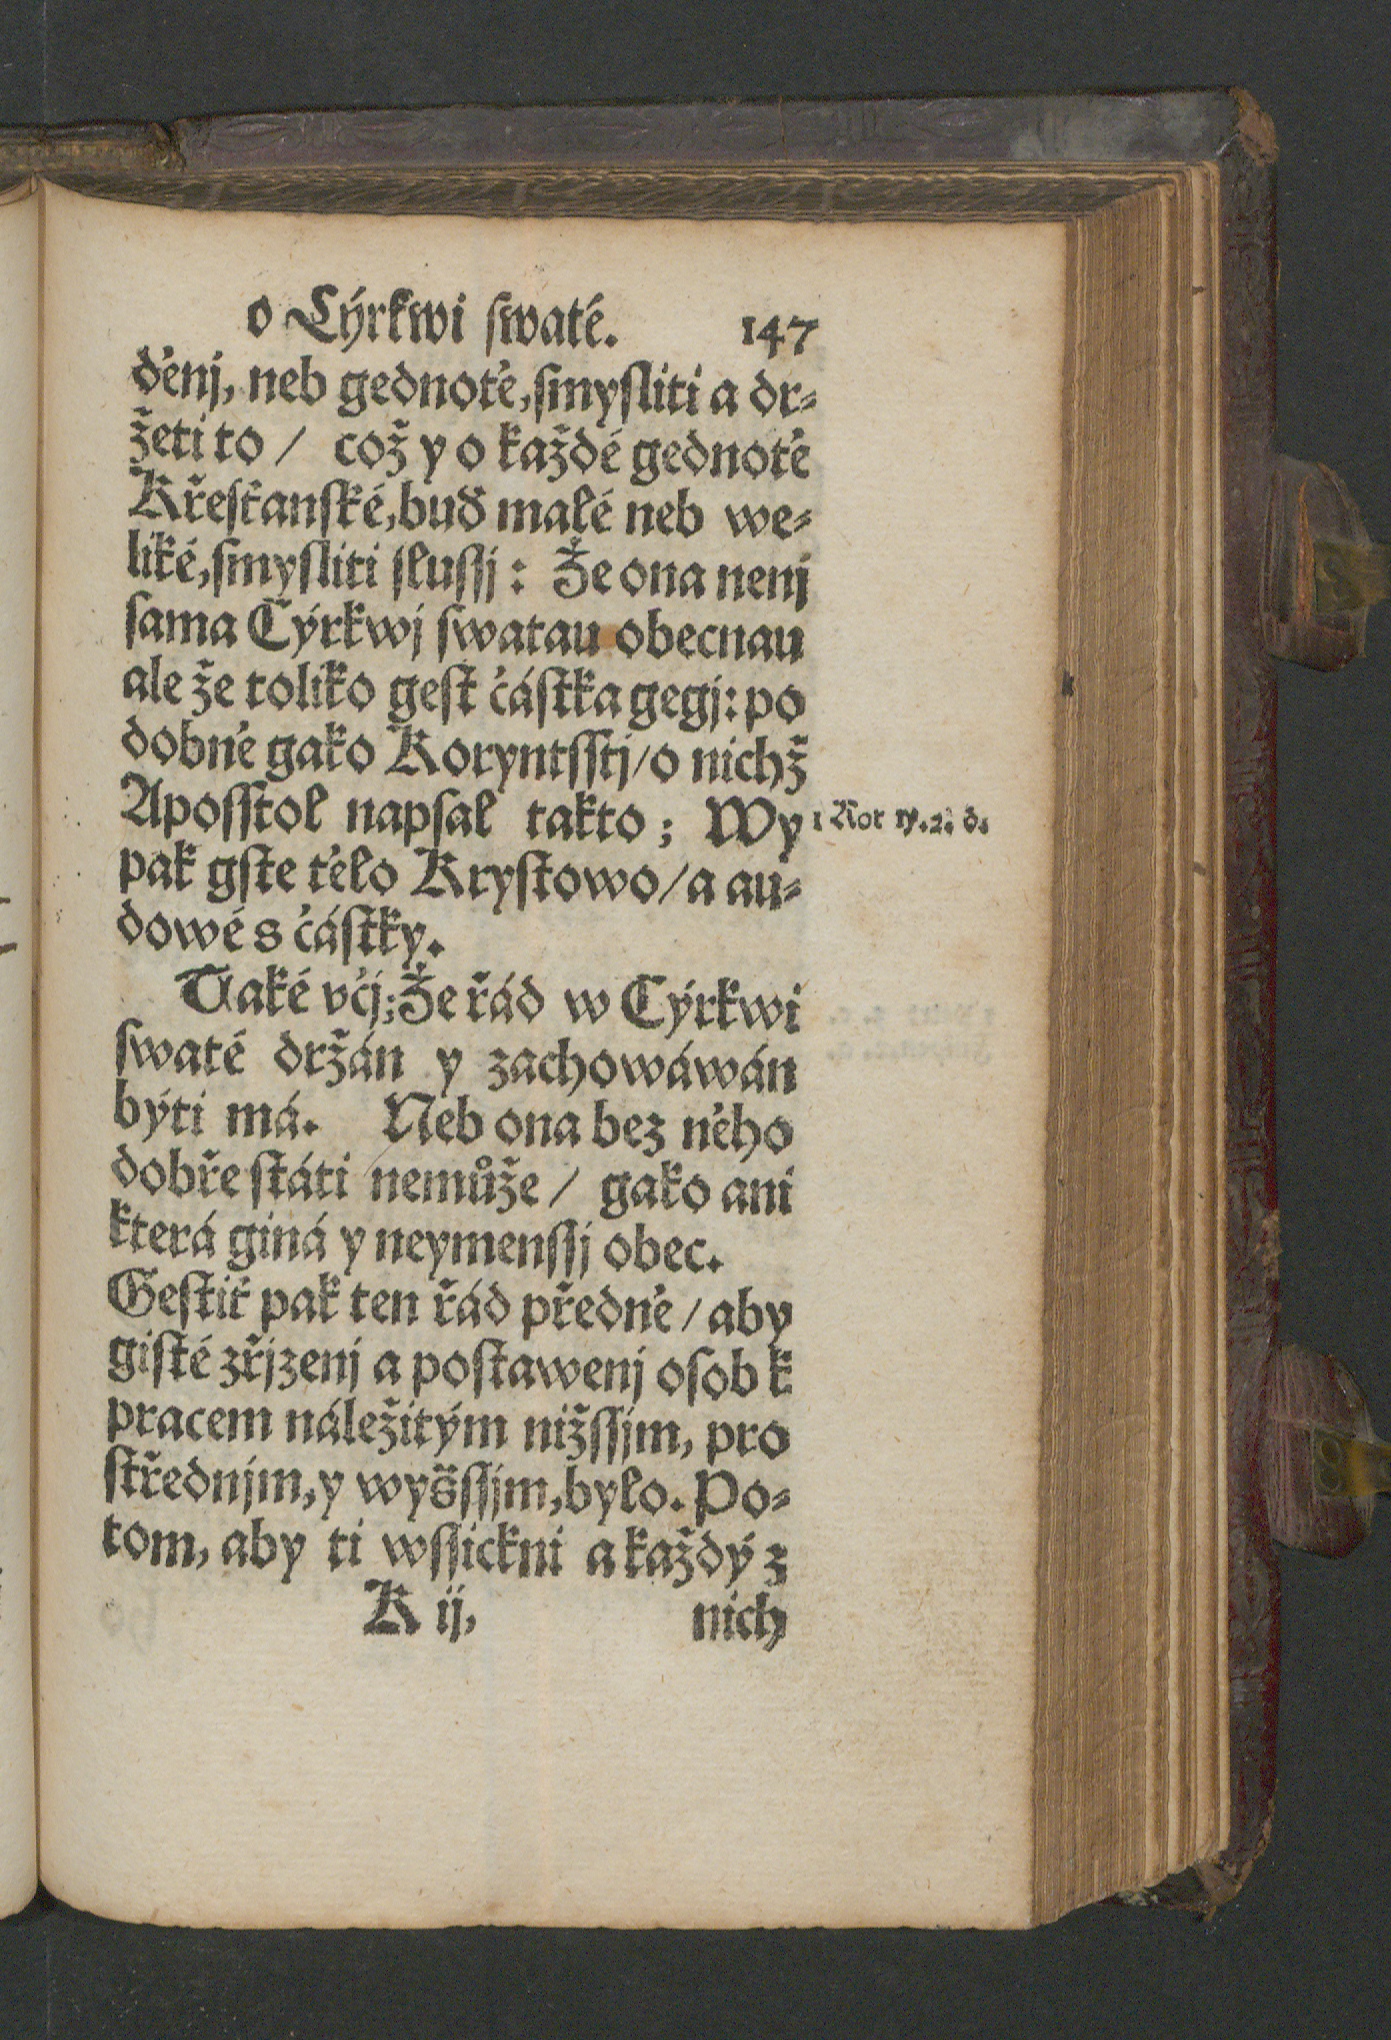 o Cýrkwi swaté. 147
děnj, neb gednotě, smysliti a dr-
žeti to / což y o každé gednotě
Křesťanské, buď malé neb we-
liké, smysliti slussj: Že ona nenj
sama Cýrkwj swatau obecnau
ale že toliko gest částka gegj: po
dobně gako Koryntsstj / o nichž
Aposstol napsal takto; Wy
1 Kor 12. d.
pak gste tělo Krystowo / a au-
dowé s částky.
Také včj; Že řád w Cýrkwi
swaté držán y zachowáwán
býti má. Neb ona bez něho
dobře státi nemůže / gako ani
která giná y neymenssj obec.
Gestiť pak ten řád předně / aby
gisté zřjzenj a postawenj osob k
pracem náležitým nižssjm, pro
střednjm, y wyšssjm, bylo. Po-
tom, aby ti wssickni a každý z
K ij, nich